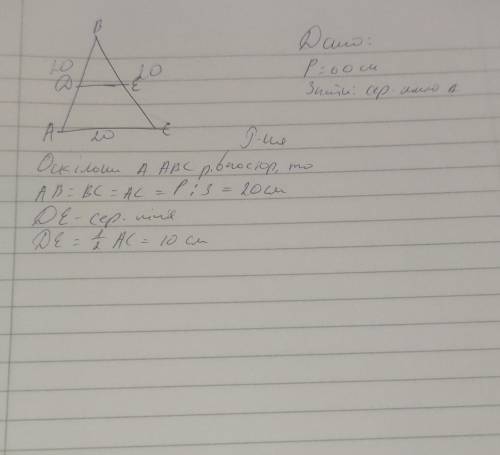 B
20
20
D
E
A
20
C
Дано:
P = 60 см
Знайти: сер. лінію Δ
Р-ня
Оскільки Δ ABC рівностор, то
AB = BC = AC = P : 3 = 20см
DE - сер. лінія
DE = 1/2 AC = 10 см